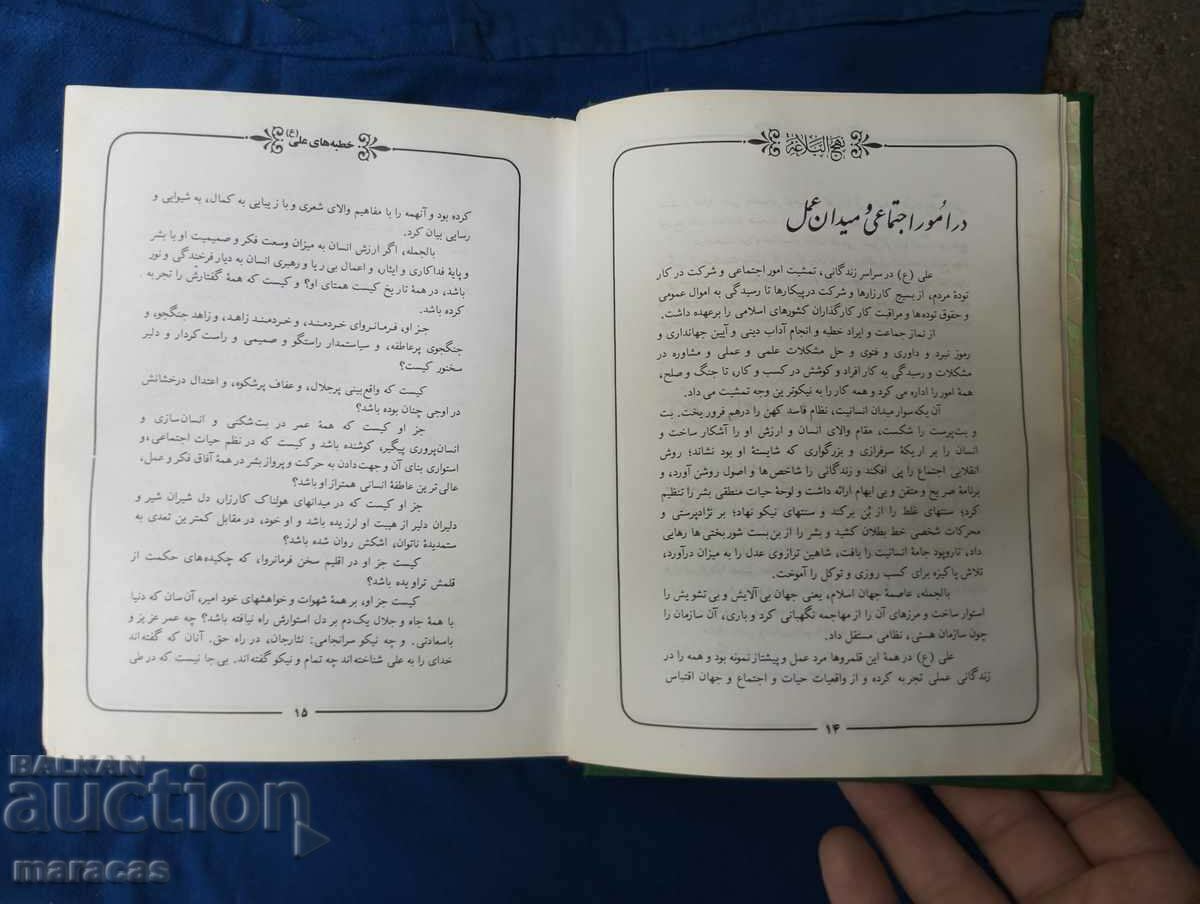 نهج البلاغة
در امور اجتماعی و میدان عمل
علی (ع) در سراسر زندگانی، تمشیت امور اجتماعی و شرکت در کار
تودۀ مردم، از بسیج کارزارها و شرکت در پیکارها تا رسیدگی به اموال عمومی
و حقوق توده‌ها و مراقبت کار کارگذاران کشورهای اسلامی را برعهده داشت.
از نماز جماعت و ایراد خطبه و انجام آداب دینی و آیین جهانداری و
رموز نبرد و داوری و فتوی و حل مشکلات علمی و عملی و مشاوره در
مشکلات و رسیدگی به کار افراد و کوشش در کسب و کار، تا جنگ و صلح،
همۀ امور را اداره می کرد و همه کار را به نیکوترین وجه تمشیت می داد.
آن یکه سوار میدان انسانیت، نظام فاسد کهن را درهم فرور یخت. بت
و بت‌پرست را شکست، مقام والای انسان و ارزش او را آشکار ساخت و
انسان را بر اریکۀ سرفرازی و بزرگواری که شایستۀ او بود نشاند؛ روش
انقلابی اجتماع را پی افکند و زندگانی را شاخص‌ها و اصول روشن آورد، و
برنامۀ صریح و متقن و بی ابهام ارائه داشت و لوحۀ حیات منطقی بشر را تنظیم
کرد؛ سنتهای غلط را از بُن برکند و سنتهای نیکو نهاد؛ بر نژادپرستی و
محرکات شخصی خط بطلان کشید و بشر را از بن‌بست شوربختی ها رهایی
داد، تاروپود جامۀ انسانیت را بافت، شاهین ترازوی عدل را به میزان درآورد،
تلاش پاکیزه برای کسب روزی و توکل را آموخت.
بالجمله، عاصمۀ جهان اسلام، یعنی جهان بی آلایش و بی تشویش را
استوار ساخت و مرزهای آن را از مهاجمه نگهبانی کرد و باری، آن سازمان را
چون سازمان هستی، نظامی مستقل داد.
علی (ع) در همۀ این قلمروها مرد عمل و پیشتاز نمونه بود و همه را در
زندگانی عملی تجربه کرده و از واقعیات حیات و اجتماع و جهان اقتباس
۱۴
خطبه های علی (ع)
کرده بود و آنهمه را با مفاهیم والای شعری و با زیبایی به کمال، به شیوایی و
رسایی بیان کرد.
بالجمله، اگر ارزش انسان به میزان وسعت فکر و صمیمیت او با بشر
و پایۀ فداکاری و ایثار، و اعمال بی ریا و رهبری انسان به دیار فرخندگی و نور
باشد، در همۀ تاریخ کیست همتای او؟ و کیست که همۀ گفتارش را تجربه
کرده باشد.
جز او، فرمانروای خردمند، و خردمند زاهد، و زاهد جنگجو، و
جنگجوی پرعاطفه، و سیاستمدار راستگو و صمیمی و راست کردار و دلیر
سخنور کیست؟
کیست که واقع‌بینی پرجلال، و عفاف پرشکوه، و اعتدال درخشانش
در اوجی چنان بوده باشد؟
جز او کیست که همۀ عمر در بت‌شکنی و انسان‌سازی و
انسان‌پروری پیگیر، کوشنده باشد و کیست که در نظم حیات اجتماعی، و
استواری بنای آن و جهت دادن به حرکت و پرواز بشر در همۀ آفاق فکر و عمل،
عالی ترین عاطفۀ انسانی همتراز او باشد؟
جز او کیست که در میدانهای هولناک کارزار، دل شیران شیر و
دلیران دلیر از هیبت او لرزیده باشد و او خود، در مقابل کمترین تعدی به
ستمدیدۀ ناتوان، اشکش روان شده باشد؟
کیست جز او در اقلیم سخن فرمانروا، که چکیده‌های حکمت از
قلمش تراویده باشد؟
کیست جز او، بر همۀ شهوات و خواهشهای خود امیر، آن‌سان که دنیا
با همۀ جاه و جلال یک دم بر دل استوارش راه نیافته باشد؟ چه عمر عزیز و
باسعادتی. و چه نیکو سرانجامی: نثارجان، در راه حق. آنان که گفته‌اند
خدای را به علی شناخته‌اند چه تمام و نیکو گفته‌اند. بی جا نیست که در طی
۱۵
BALKAN
auction
maracas